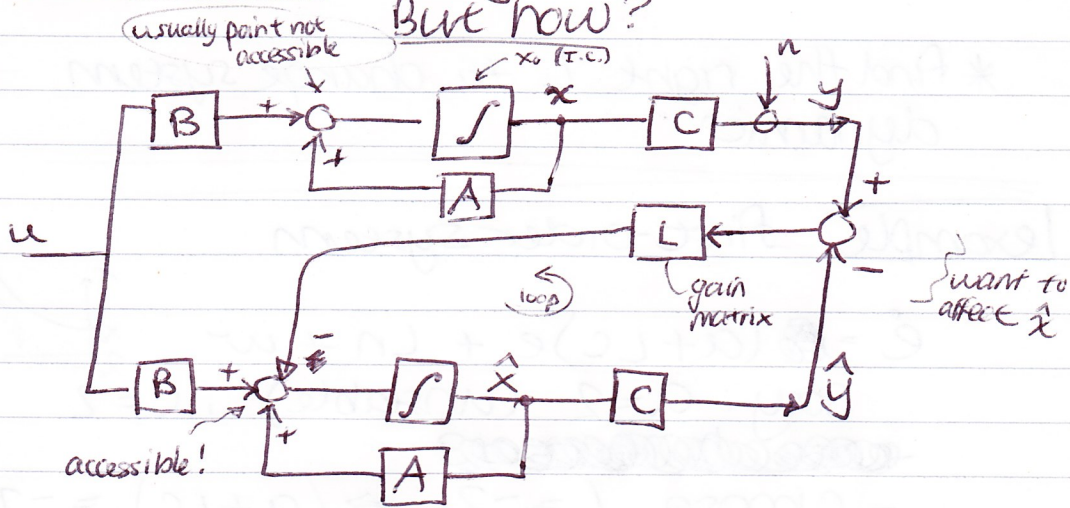 But how?
usually point not
accessible
x₀ (I.C.)
n
B
+
∫
x
C
y
+
A
+
u
L
−
gain
matrix
loop
want to
affect x̂
−
B
+
∫
x̂
C
ŷ
+
accessible!
A